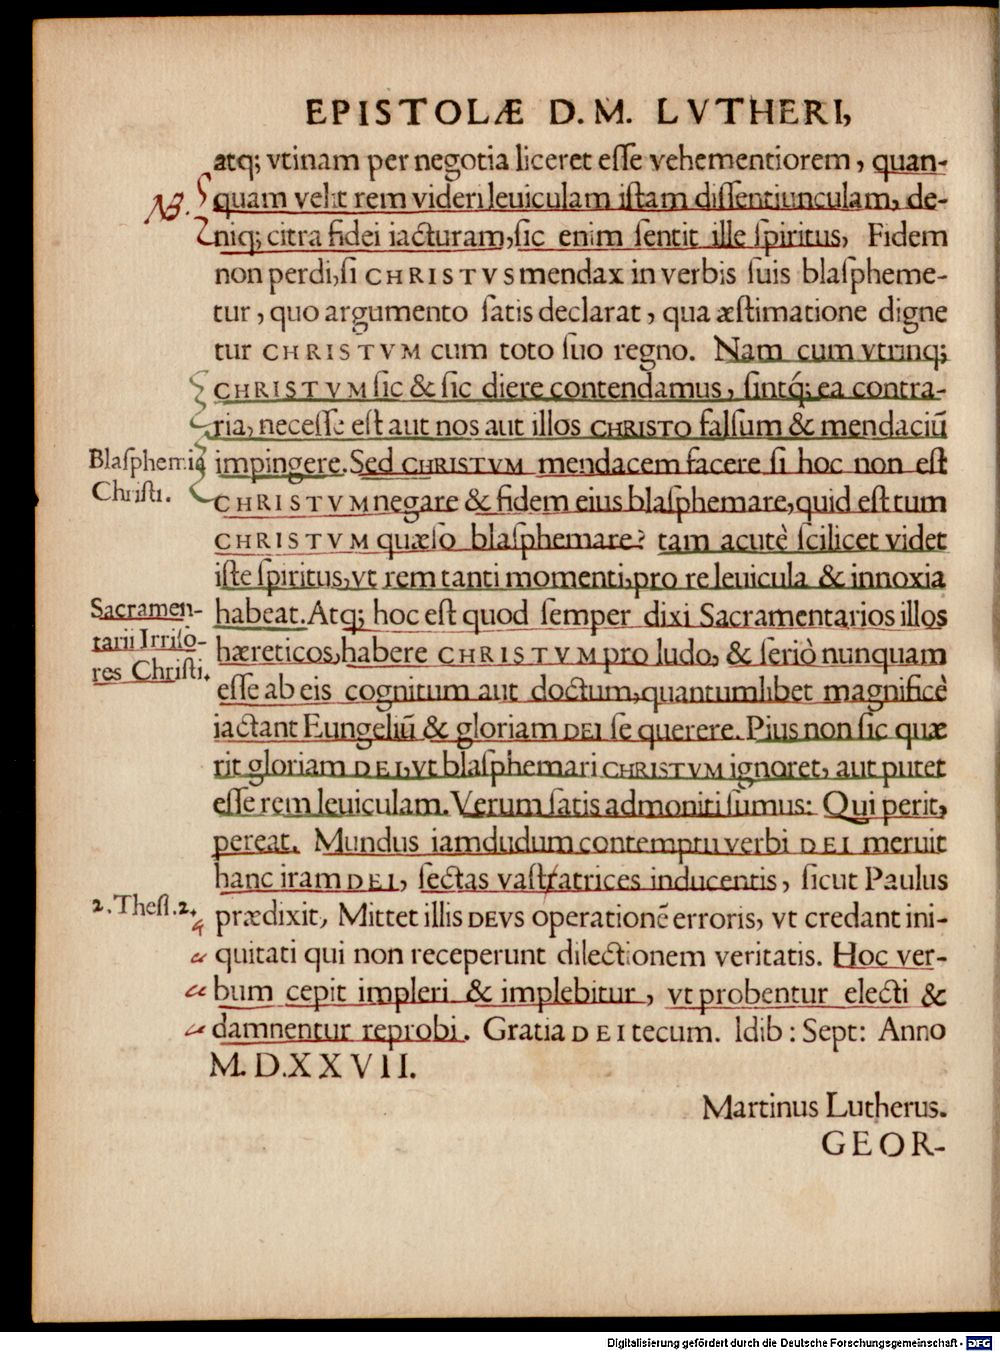 EPISTOLÆ D. M. LVTHERI,
atq; vtinam per negotia liceret esse vehementiorem, quan-
NB.
quam velit rem videri leuiculam istam dissentiunculam, de-
niq; citra fidei iacturam, sic enim sentit ille spiritus, Fidem
non perdi, si CHRISTVS mendax in verbis suis blaspheme-
tur, quo argumento satis declarat, qua æstimatione digne
tur CHRISTVM cum toto suo regno. Nam cum vtrinq;
CHRISTVM sic & sic diere contendamus, sintq́; ea contra-
ria, necesse est aut nos aut illos CHRISTO falsum & mendaciū
Blasphemia
Christi.
impingere. Sed CHRISTVM mendacem facere si hoc non est
CHRISTVM negare & fidem eius blasphemare, quid est tum
CHRISTVM quæso blasphemare? tam acutè scilicet videt
iste spiritus, vt rem tanti momenti, pro re leuicula & innoxia
Sacramen-
tarii Irriso-
res Christi.
habeat. Atq; hoc est quod semper dixi Sacramentarios illos
hæreticos, habere CHRISTVM pro ludo, & seriò nunquam
esse ab eis cognitum aut doctum, quantumlibet magnificè
iactant Eungeliū & gloriam DEI se querere. Pius non sic quæ
rit gloriam DEI, vt blasphemari CHRISTVM ignoret, aut putet
esse rem leuiculam. Verum satis admoniti sumus: Qui perit,
pereat. Mundus iamdudum contemptu verbi DEI meruit
hanc iram DEI, sectas vastratrices inducentis, sicut Paulus
2. Thess. 2.
prædixit, Mittet illis DEVS operationē erroris, vt credant ini-
quitati qui non receperunt dilectionem veritatis. Hoc ver-
bum cepit impleri & implebitur, vt probentur electi &
damnentur reprobi. Gratia DEI tecum. Idib: Sept: Anno
M. D. XXVII.
Martinus Lutherus.
GEOR-
Digitalisierung gefördert durch die Deutsche Forschungsgemeinschaft - DFG